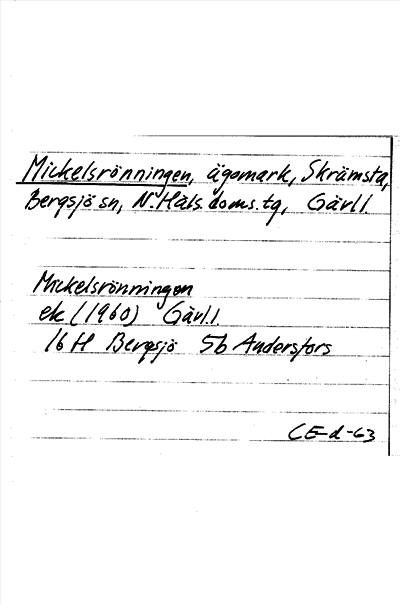 Mickelsrönningen, ägomark, Skrämsta,
Bergsjö sn, N. Häls. doms. tg, Gävl l.
Mickelsrönningen
ek (1960) Gävl. l.
16 H Bergsjö 5b Andersfors
CE-d-63